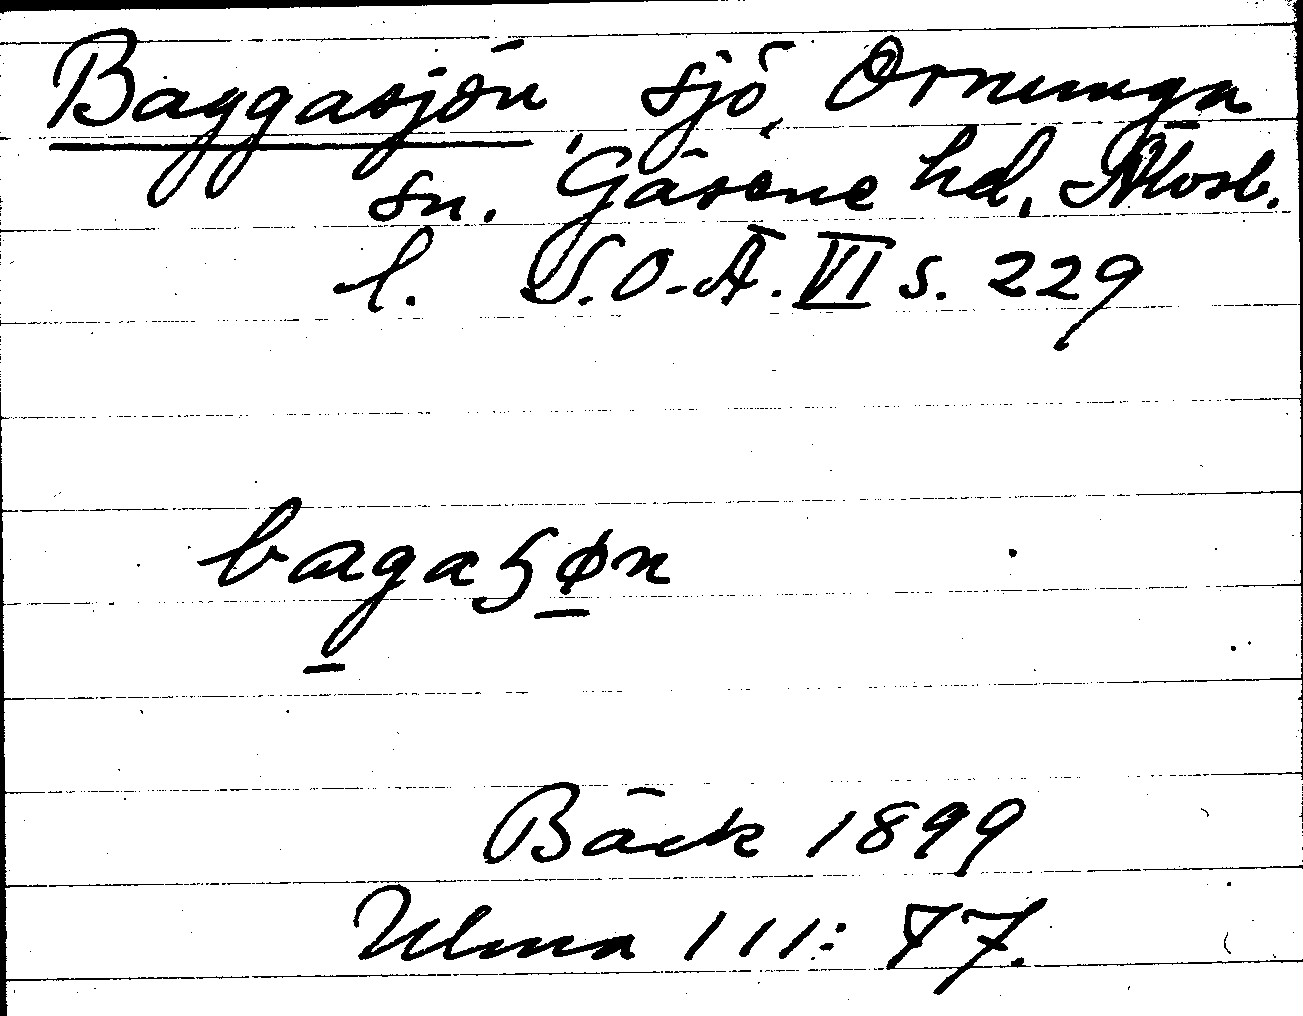 Baggasjön, sjö, Ornunga
sn. Gäsene hd, Älvsb.
l. S.O.Ä. VI s. 229
bagaʃøn
Bäck 1899
Ulma 111:77.